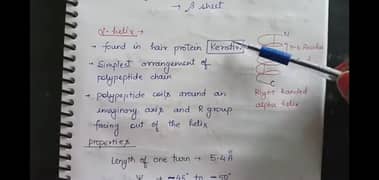 → β sheet
α-helix →
→ found in hair protein Keratin
→ Simplest arrangement of
polypeptide chain
→ polypeptide coils around an
imaginary axis and R group
facing out of the helix
N
C
Right handed
alpha helix
Properties
Length of one turn → 5.4 Å
-45° to -50°